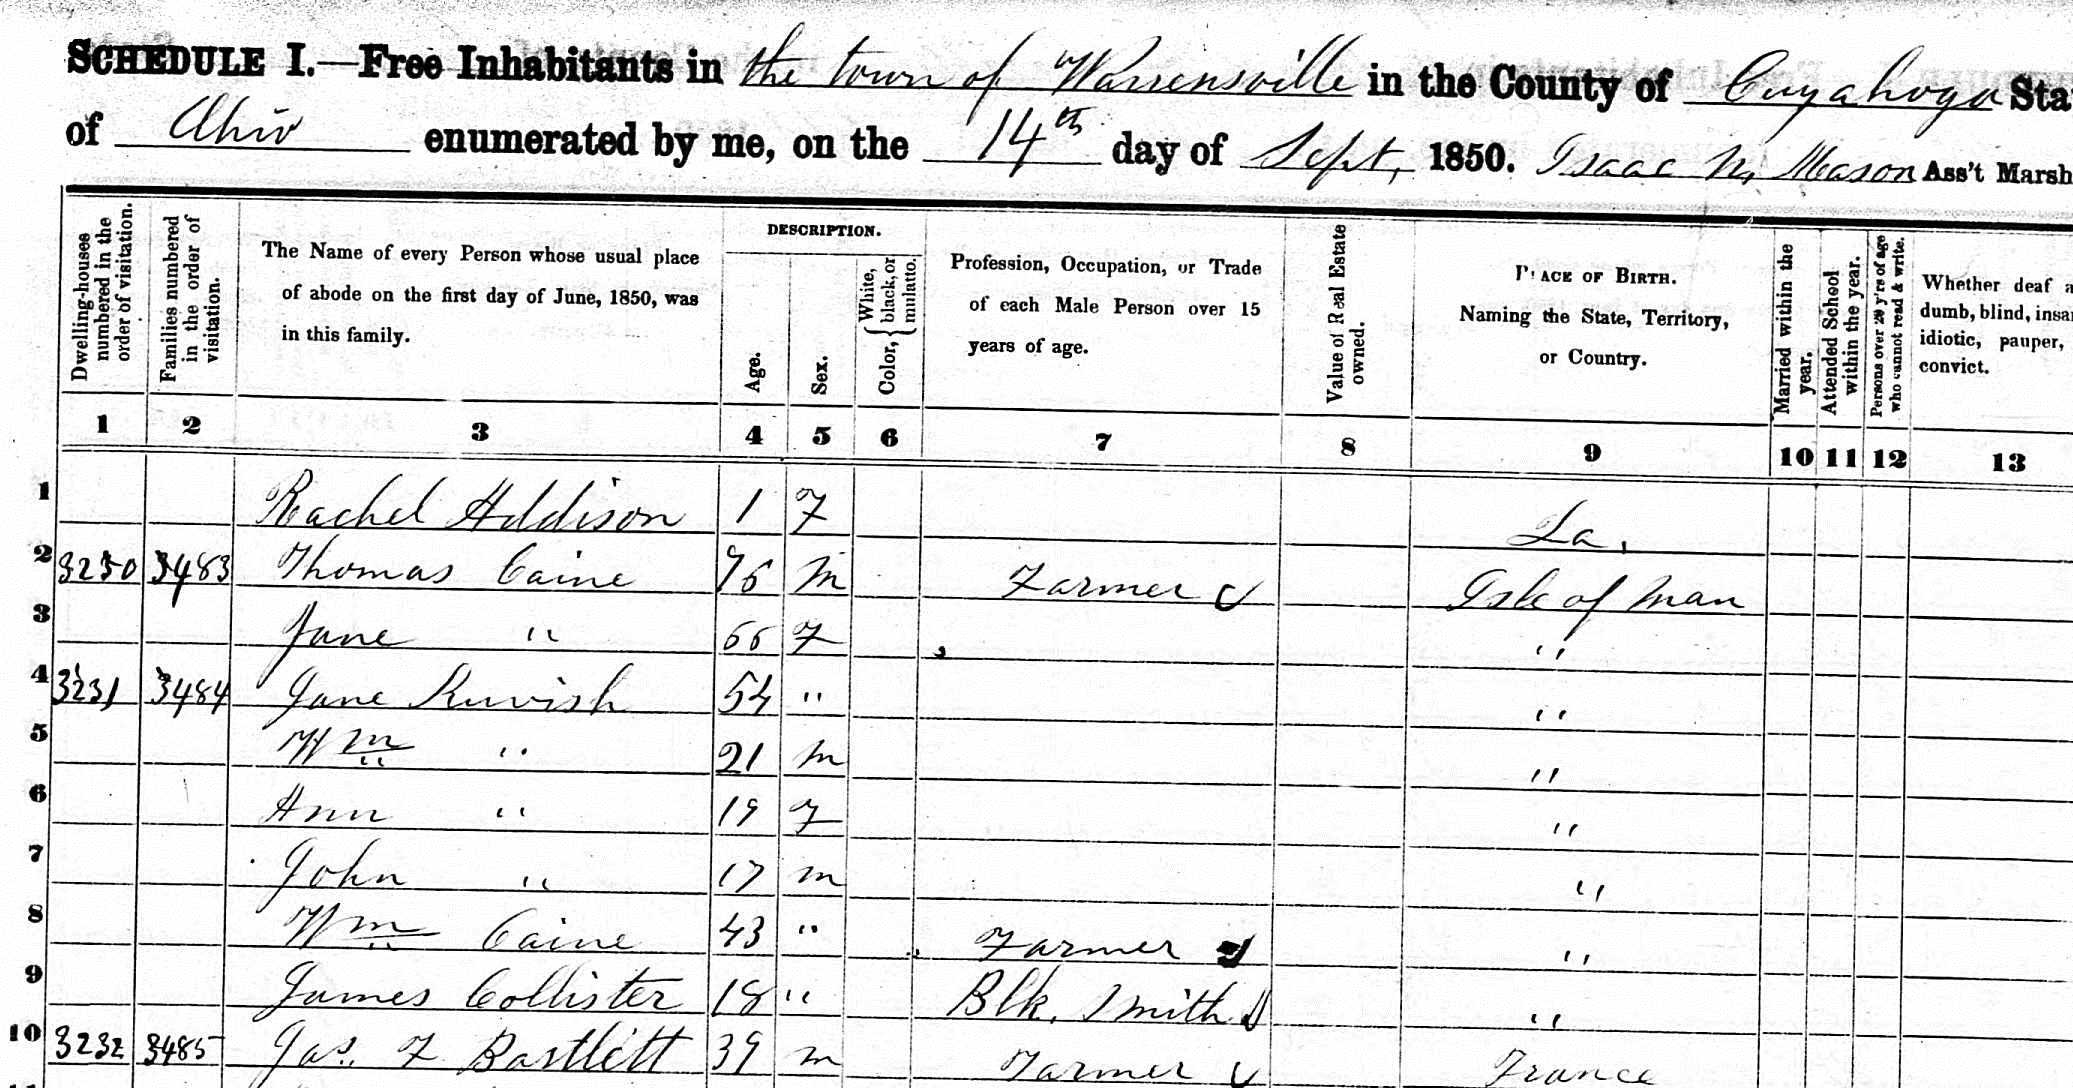 SCHEDULE I.—Free Inhabitants in the town of Warrensville in the County of Cuyahoga Sta
of Ohio enumerated by me, on the 14th day of Sept, 1850. Isaac N. Mason Ass't Marsh
Dwelling-houses numbered in the order of visitation.
Families numbered in the order of visitation.
The Name of every Person whose usual place
of abode on the first day of June, 1850, was
in this family.
DESCRIPTION.
Age.
Sex.
Color, { White, black, or mulatto.
Profession, Occupation, or Trade
of each Male Person over 15
years of age.
Value of Real Estate owned.
PLACE OF BIRTH.
Naming the State, Territory,
or Country.
Married within the year.
Attended School within the year.
Persons over 20 y'rs of age who cannot read & write.
Whether deaf a
dumb, blind, insa
idiotic, pauper,
convict.
1 2 3 4 5 6 7 8 9 10 11 12 13
1 Rachel Addison 1 F La.
2 3230 3483 Thomas Caine 76 M Farmer Isle of Man
3 Jane " 66 F "
4 3231 3484 Jane Kuvish 54 " "
5 Wm " 21 M "
6 Ann " 19 F "
7 John " 17 M "
8 Wm Caine 43 " Farmer "
9 James Collister 18 " Blk. Smith "
10 3232 3485 Jas. F Bartlett 39 M Farmer France